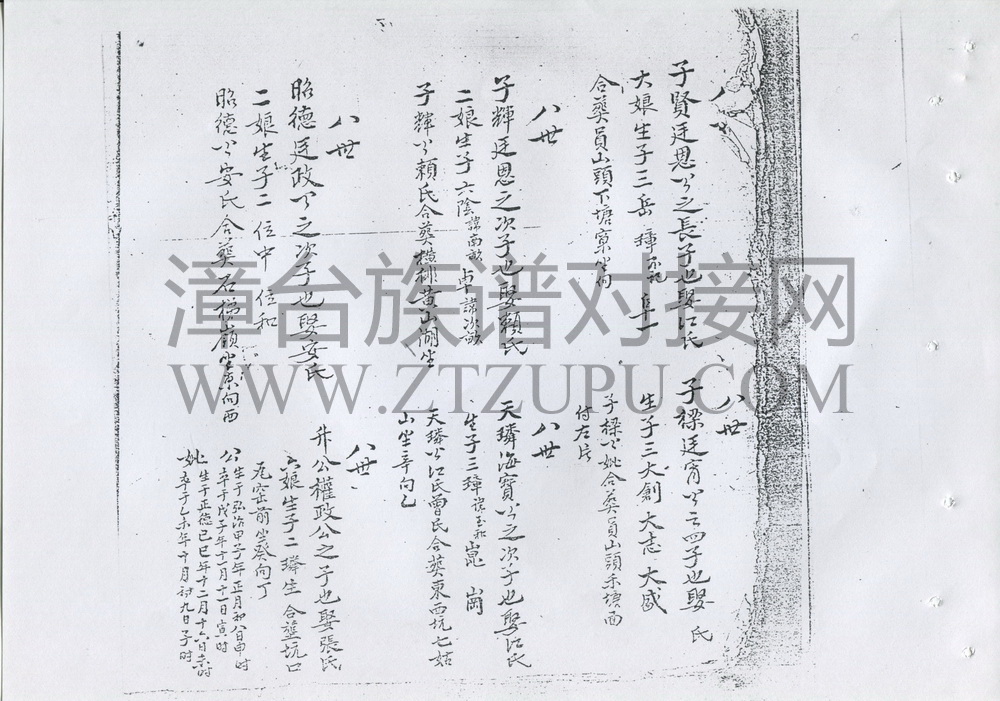 八
子賢廷恩公之長子也娶江氏
大娘生子三岳 璋 阜一
合葬員山頭下塘窠坐向
八世
子輝廷恩之次子也娶賴氏
二娘生子六陰諱南畝 卓諱次畝
子輝公賴氏合葬橫排黃山湖坐
八世
昭德廷政公之次子也娶安氏
二娘生子二 位中 位和
昭德公安氏合葬石梯嶺坐東向西
八世
子樑廷宵公之四子也娶 氏
生子三大創 大志 大盛
子樑公妣合葬員山頭禾塘面
付左片
八世
天璘海寶公之次子也娶江氏
生子三璋諱玉和 崑 崗
天璘公江氏曾氏合葬東西坑七姑
山坐辛向乙
八世
升公權政公之子也娶張氏
六娘生子二 璘生 合葬坑口
瓦窑前坐癸向丁
公生于弘治甲子年正月初八日申时
卒于戊子年十一月十一日寅时
妣生于正德己巳年十二月十六日未时
卒于乙未年十月廿九日子时
漳台族谱对接网
WWW.ZTZUPU.COM